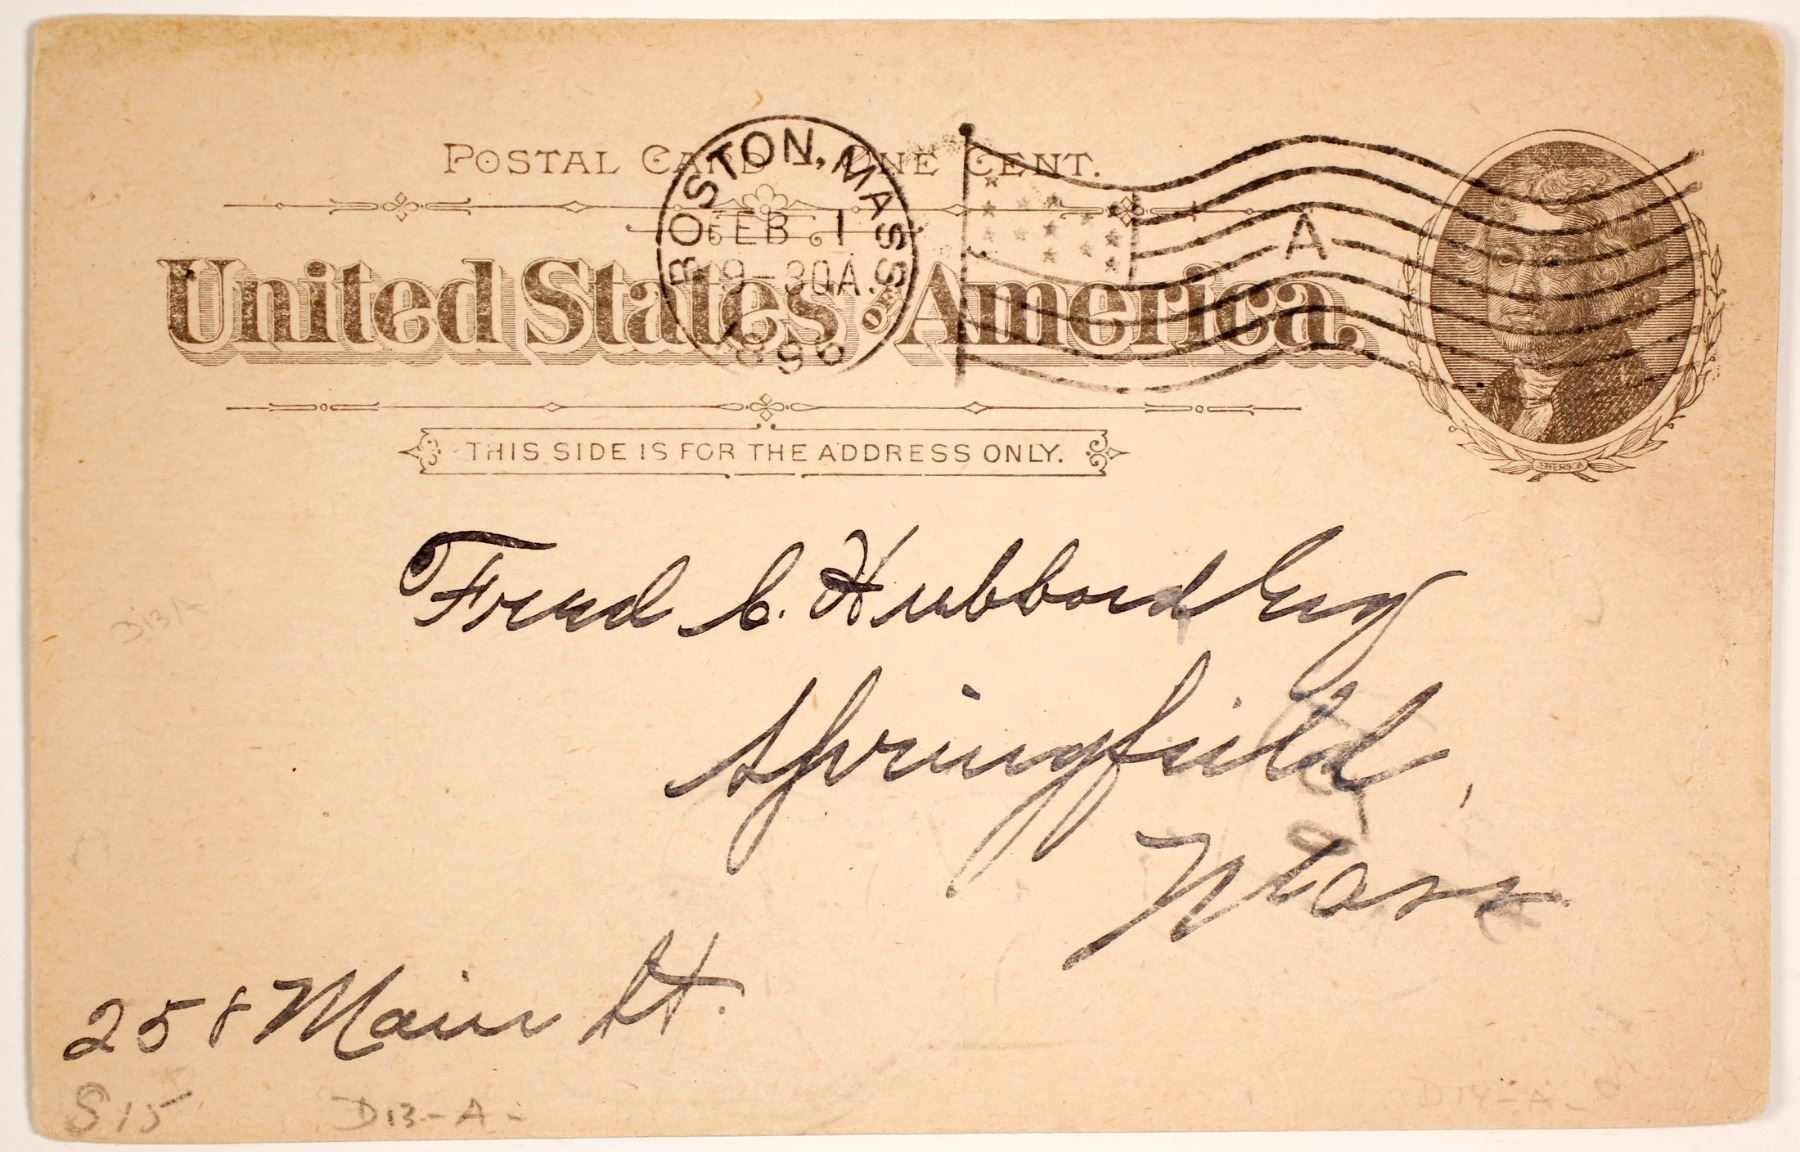 POSTAL CARD – ONE CENT.
BOSTON, MASS
FEB 1
9-30A.
1896
A
United States of America.
THIS SIDE IS FOR THE ADDRESS ONLY.
JEFFERSON
Fred C. Hubbard Esq
Springfield,
Mass
258 Main St.
S15
D13-A-
D13A
D14-A-